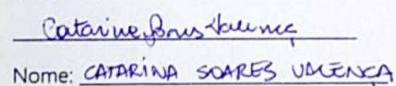 Catarine Soares Valença
Nome: CATARINA SOARES VALENÇA